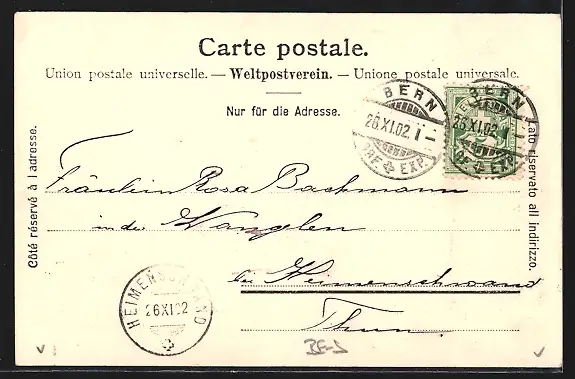 Carte postale.
Union postale universelle. — Weltpostverein. — Unione postale universale.
Nur für die Adresse.
Côté réservé à l adresse.
Lato riservato all indirizzo.
BERN
26.XI.02. I –
BRF EXP.
BERN
26.XI.02. I
BRF EXP.
Fräulein Rosa Bachmann
in der Wanglen
bei Heimenschwand
Thun.
HEIMENSCHWAND
26 XI 02
BE-J